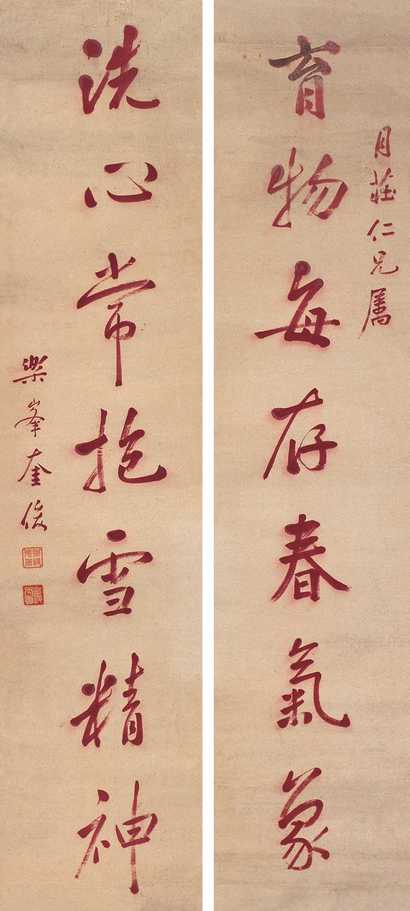 月莊仁兄屬
育物每存春氣象
洗心常抱雪精神
樂峯奎俊